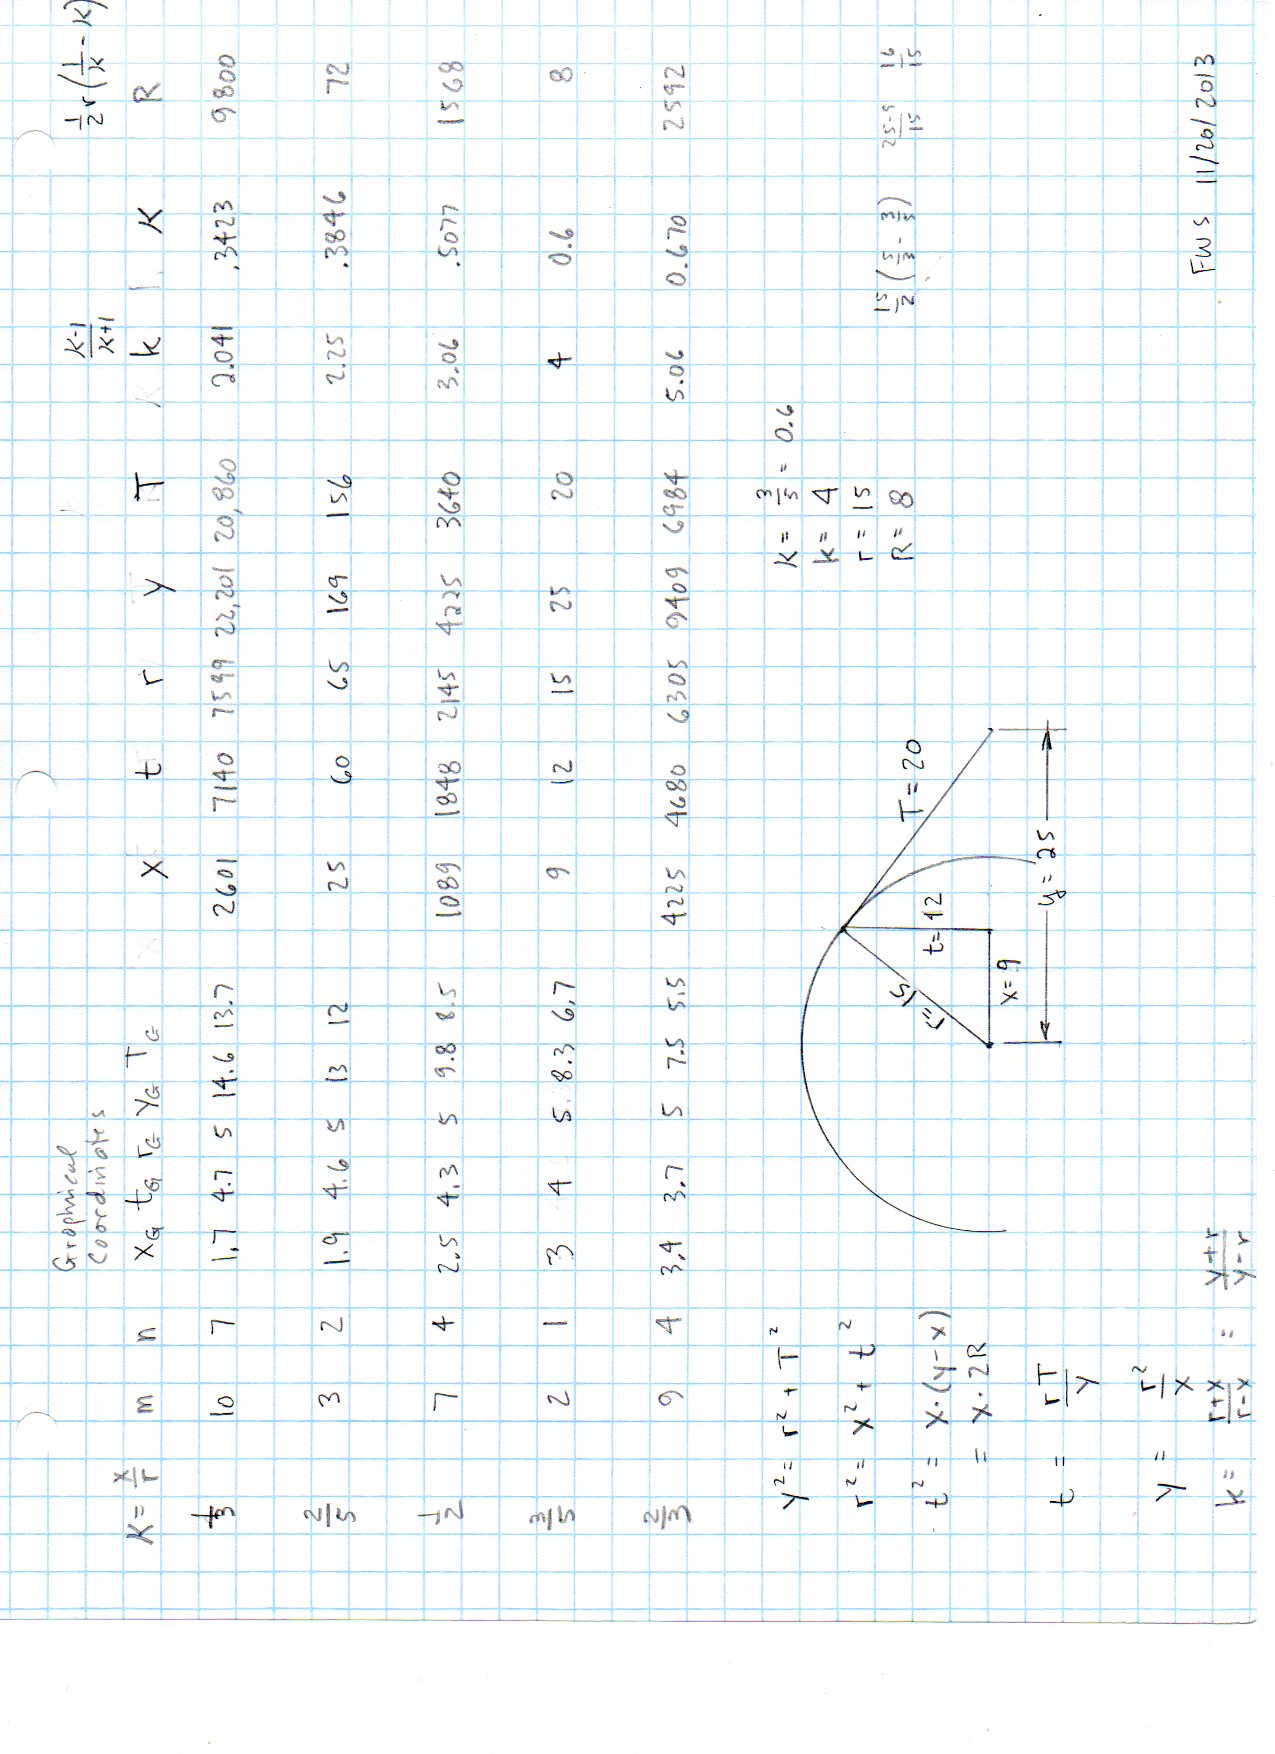 Graphical
Coordinates
k-1/k+1
1/2 r(1/K - K)
K = x/r m n xG tG rG yG TG x t r y T k K R
1/3 10 7 1.7 4.7 5 14.6 13.7 2601 7140 7599 22,201 20,860 2.041 .3423 9800
2/5 3 2 1.9 4.6 5 13 12 25 60 65 169 156 2.25 .3846 72
1/2 7 4 2.5 4.3 5 9.8 8.5 1089 1848 2145 4225 3640 3.06 .5077 1568
3/5 2 1 3 4 5 8.3 6.7 9 12 15 25 20 4 0.6 8
2/3 9 4 3.4 3.7 5 7.5 5.5 4225 4680 6305 9409 6984 5.06 0.670 2592
y² = r² + T²
r² = x² + t²
t² = x·(y-x)
= x·2R
t = rT/y
y = r²/x
k = r+x/r-x = y+r/y-r
r=15
t=12
x=9
T=20
y=25
K = 3/5 = 0.6
k = 4
r = 15
R = 8
15/2 (5/3 - 3/5) 25-9/15 16/15
FWS 11/26/2013